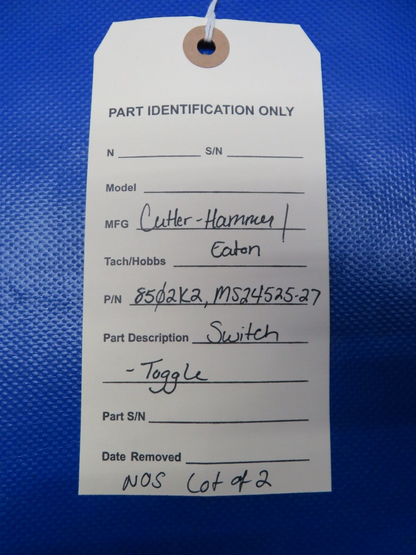 PART IDENTIFICATION ONLY
N ____________ S/N ____________
Model
MFG Cutler-Hammer /
Eaton
Tach/Hobbs
P/N 8502K2, MS24525-27
Part Description Switch
- Toggle
Part S/N
Date Removed
NOS Lot of 2